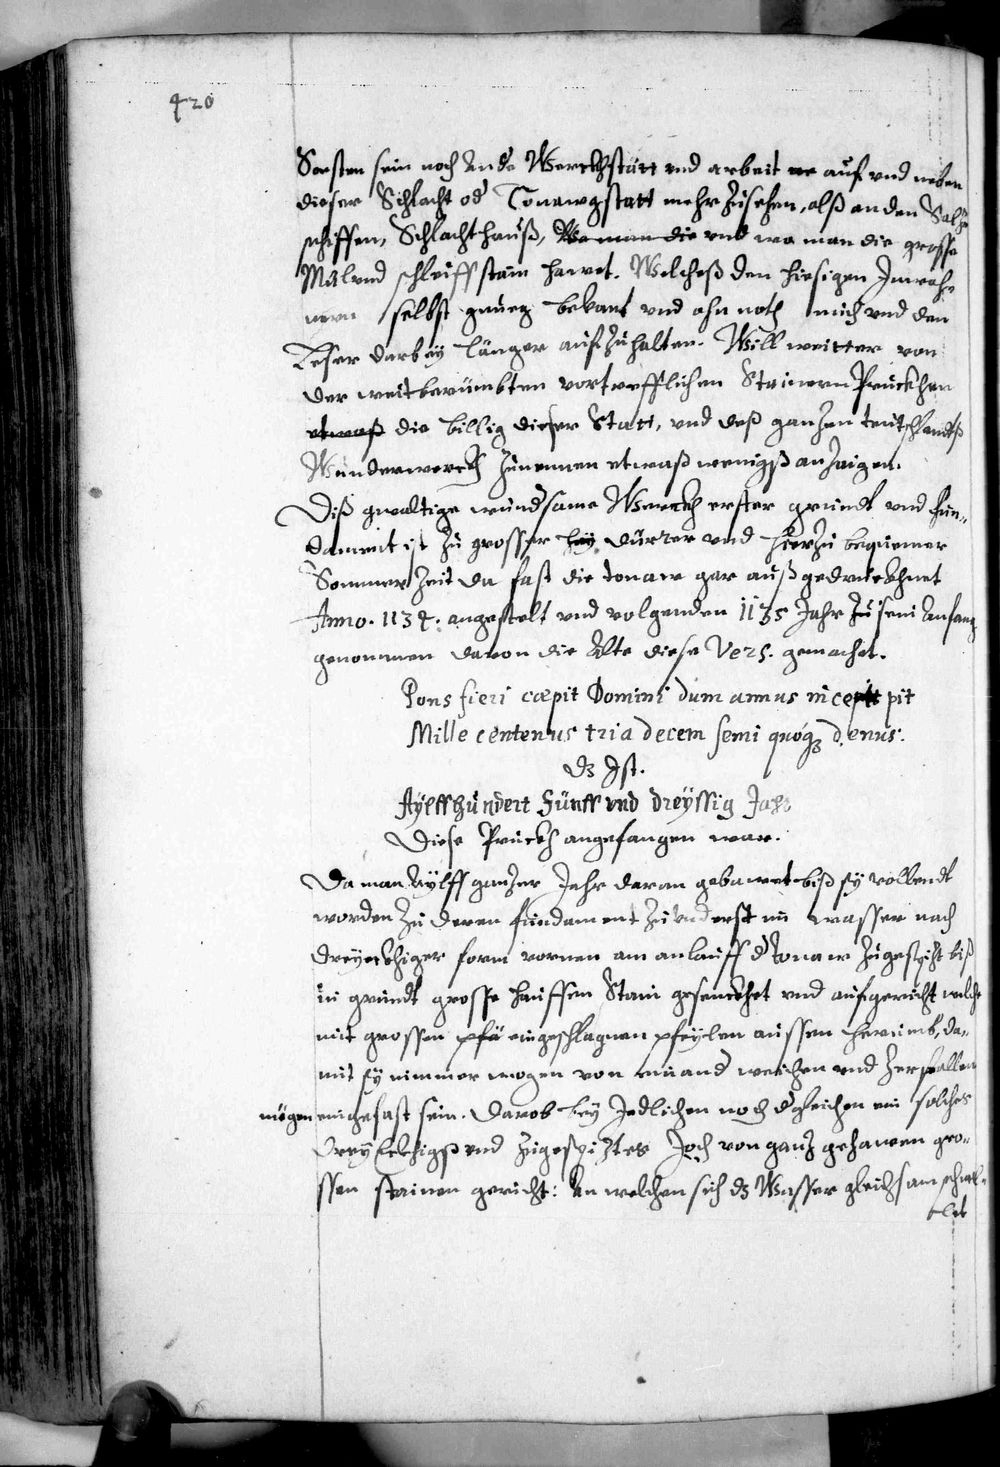 420
Sonsten sein noch Ande Werckhstätt vnd arbeit auf vnd neben
dieser Schlacht od Tonawgstatt mehr zusehen, alß an den Saltz
schiffen, Schlachthauß, Wo man die vnd wo man die grosse
Mül vnd schleiffstain hawet. Welcheß den hiesigen Inwoh
nern selbst genueg bekant vnd ohn noth mich vnd den
Leser darbey länger aufzuhalten. Will weitter von
der weitberümbten vortrefflichen Stainern Pruckhen
etwaß die billig dieser Statt, vnd deß ganzen teutschlandtß
Wunderwerckh zunennen etwaß wenigß anzaigen.
Diß gwaltige wundsame Werckh erster grundt vnd fun-
dament ist zu grosser dürrer vnd hierzu bequemer
Sommerzeit da fast die tonaw gar außgedruckhnet
Anno. 1134. angestelt vnd volgenden 1135 Jahr zu sein Anfang
genommen davon die Alte diese Vers. gemachet.
Pons fieri cœpit Domini dum annus incepit pit
Mille centenus tria decem semi quoqȝ denus.
dȝ Ist.
Aylffhundert Fünff vnd dreyssig Jahr
Diese Pruckh angefangen war.
Da man Aylff ganzer Jahr daran gebawet biß sy vollendt
worden zu deren fundament zu vnderst im wasser nach
dreyeckhiger form vornen am anlauff d tonaw zugespizt biß
in grundt grosse hauffen Stain gesenckhet vnd aufgericht welche
mit grossen pfä eingeschlagnen pfeylen aussen herumb, da-
mit sy nimmer mogen von einand weichen vnd zerfallen
mögen eingefast sein. Darob bey Jedlichen noch dgleichen ein solches
dreyEckhigß vnd zugespiztes Joch von ganz gehawen gro-
ssen stainen gericht: An welchen sich dȝ Wasser gleichsam